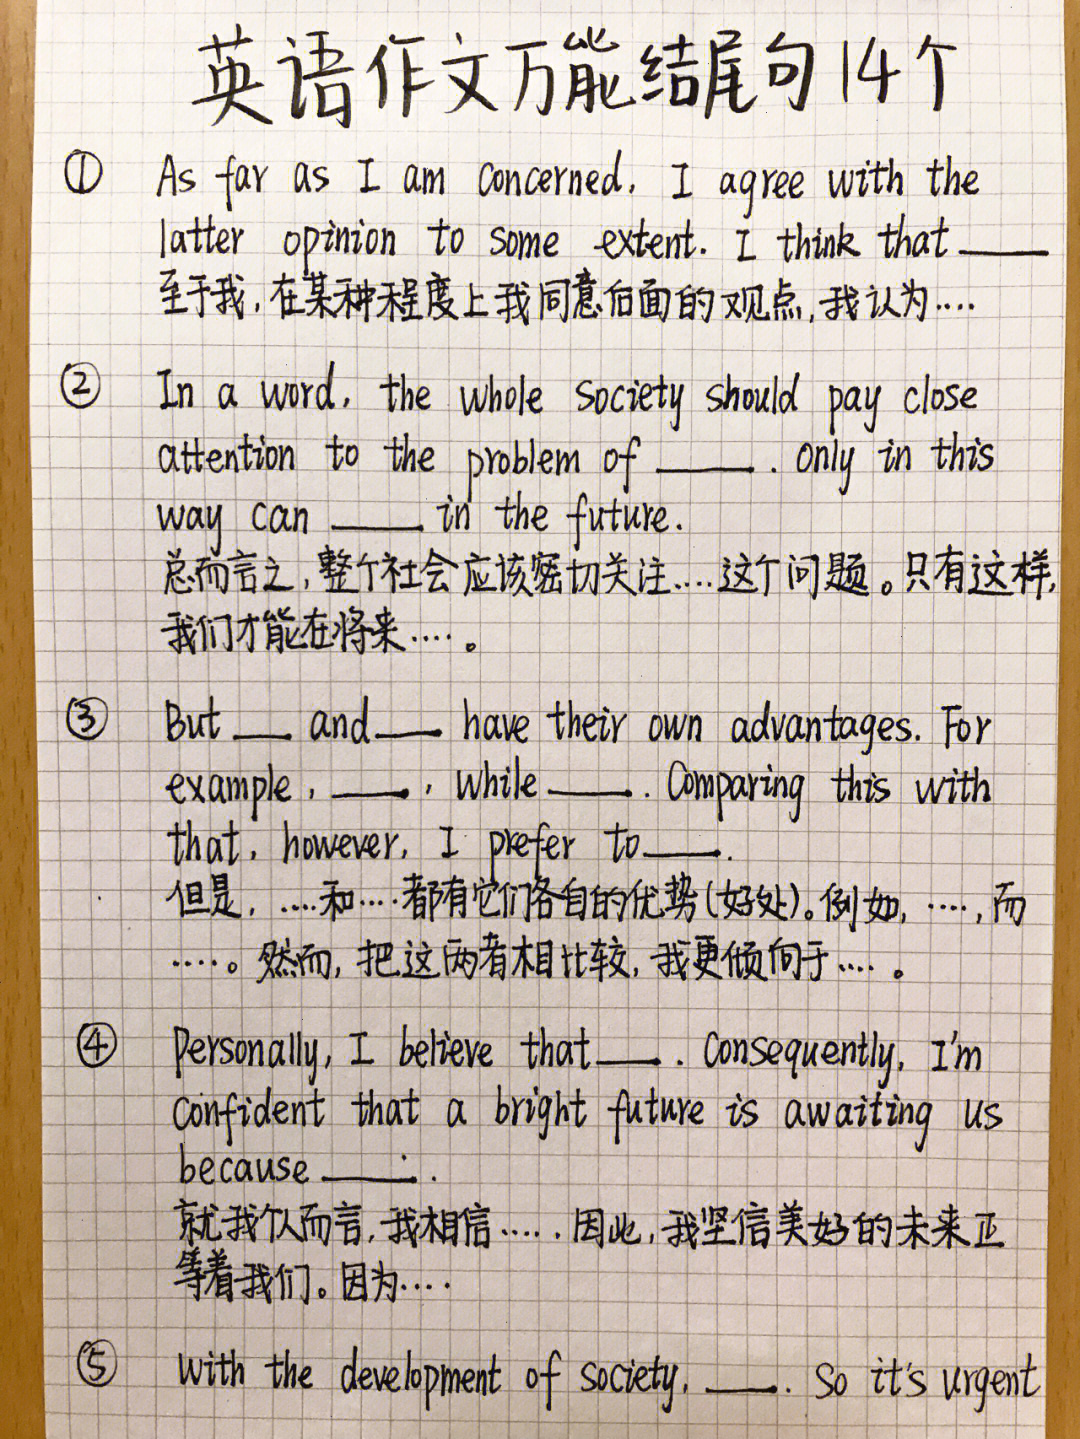 英语作文万能结尾句14个
① As far as I am concerned, I agree with the
latter opinion to some extent. I think that ____
至于我,在某种程度上我同意后面的观点,我认为....
② In a word, the whole society should pay close
attention to the problem of ____. only in this
way can ____ in the future.
总而言之,整个社会应该密切关注....这个问题。只有这样,
我们才能在将来....。
③ But ___ and ___ have their own advantages. For
example, ____, while ____. Comparing this with
that, however, I prefer to ____.
但是,....和....都有它们各自的优势(好处)。例如,....,而
....。然而,把这两者相比较,我更倾向于....。
④ Personally, I believe that ___. Consequently, I'm
confident that a bright future is awaiting us
because ____.
就我个人而言,我相信..... 因此,我坚信美好的未来正
等着我们。因为....
⑤ with the development of society, ___. So it's urgent